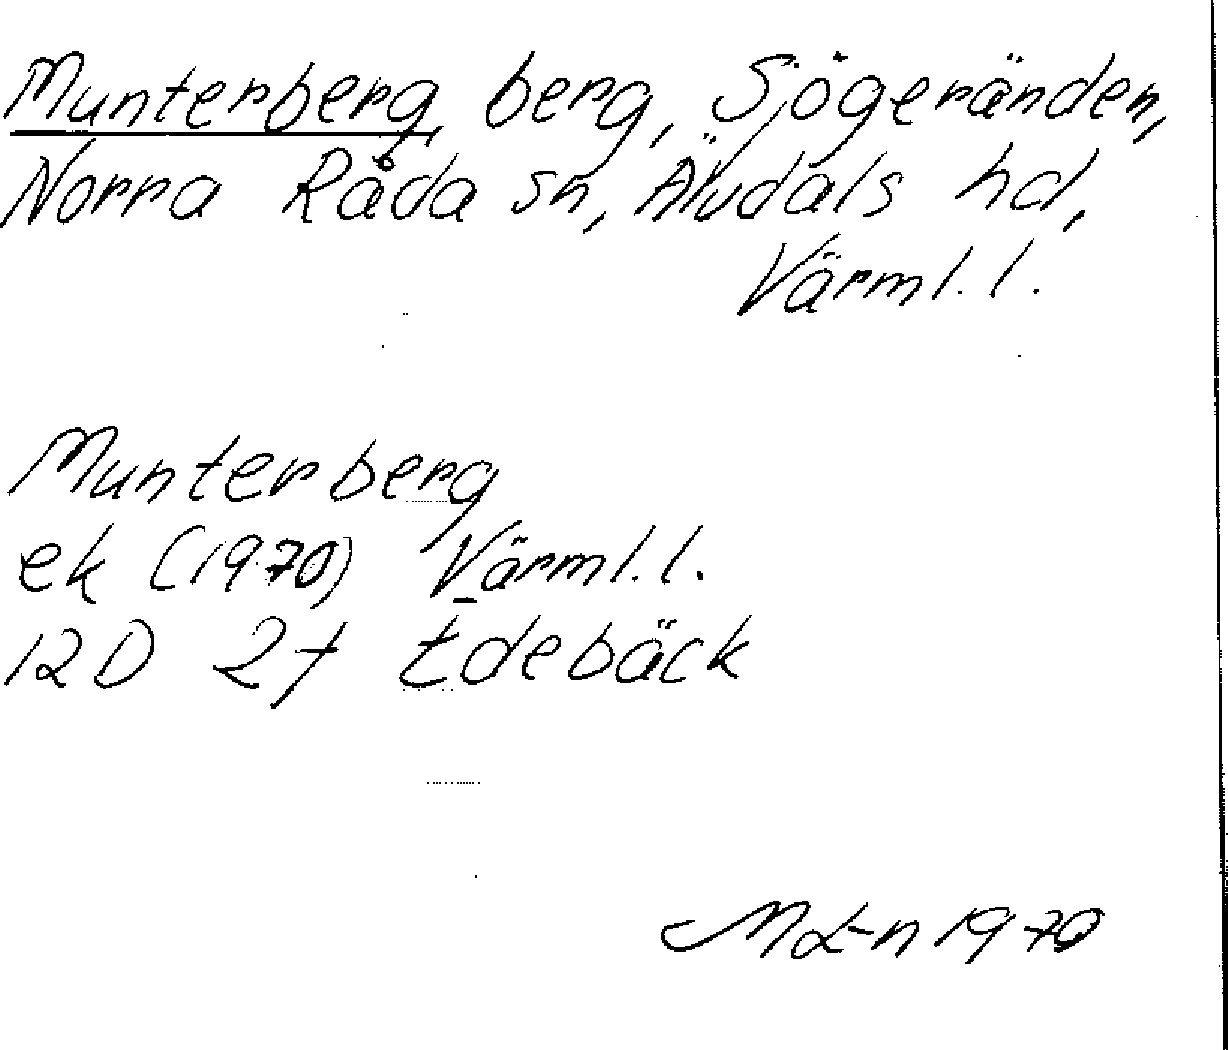 Munterberg, berg, Sjögeränden,
Norra Råda sn, Älvdals hd,
Värml. l.
Munterberg
ek (1970) Värml. l.
12D 2f Edebäck
ML-n 1970